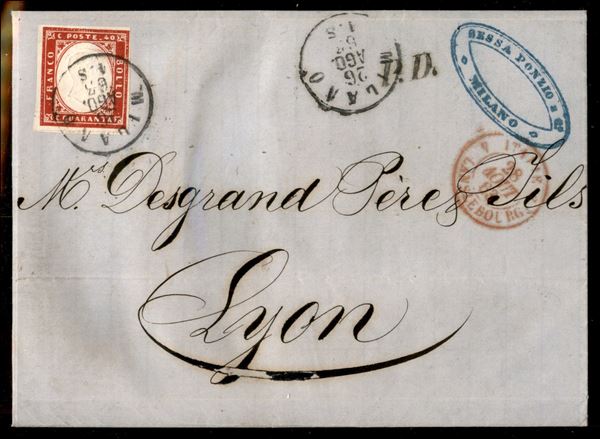 C. POSTE. 40
FRANCO
BOLLO
C. QUARANTA
MILANO
26
AGO.
62
1. S
MILANO
26
AGO.
62
1. S
P.D.
GESSA PONZIO & Cº
MILANO
ITALIE
28
AOUT
Mrs. Desgrand Père & Fils
Lyon